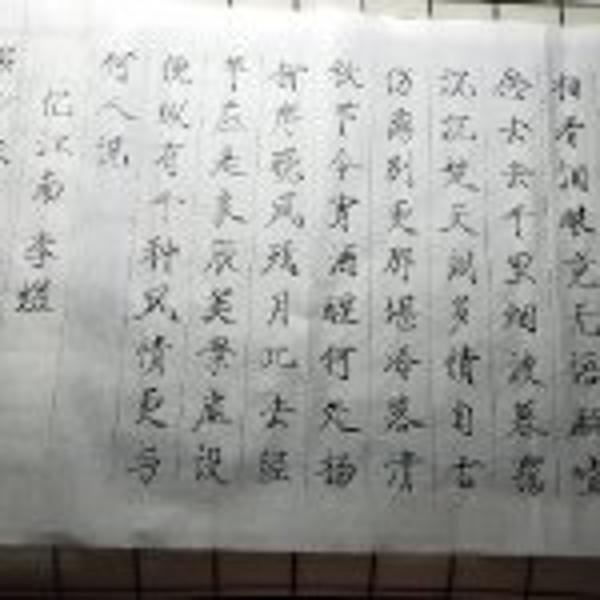 相看泪眼竟无语凝噎
念去去千里烟波暮霭
沉沉楚天阔多情自古
伤离别更那堪冷落清
秋节今宵酒醒何处杨
柳岸晓风残月此去经
年应是良辰美景虚设
便纵有千种风情更与
何人说
忆江南 李煜